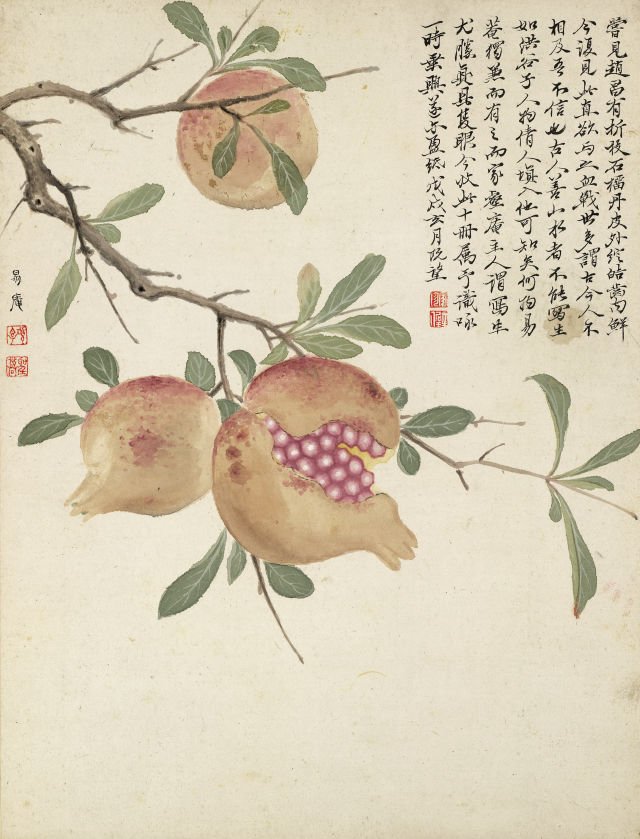 嘗見趙昌有折枝石榴丹皮外綻皓齒內鮮
今復見此真欲与之血戰世多謂古今人不
相及吾不信也古人善山水者不能寫生
如洪谷子人物倩人填入他可知矣何物易
菴獨兼而有之而家無菴主人謂寫生
尤勝最具隻眼今收此十冊屬予識咏
一時乘興遂亦盡紙戊戌亥月既望
易菴